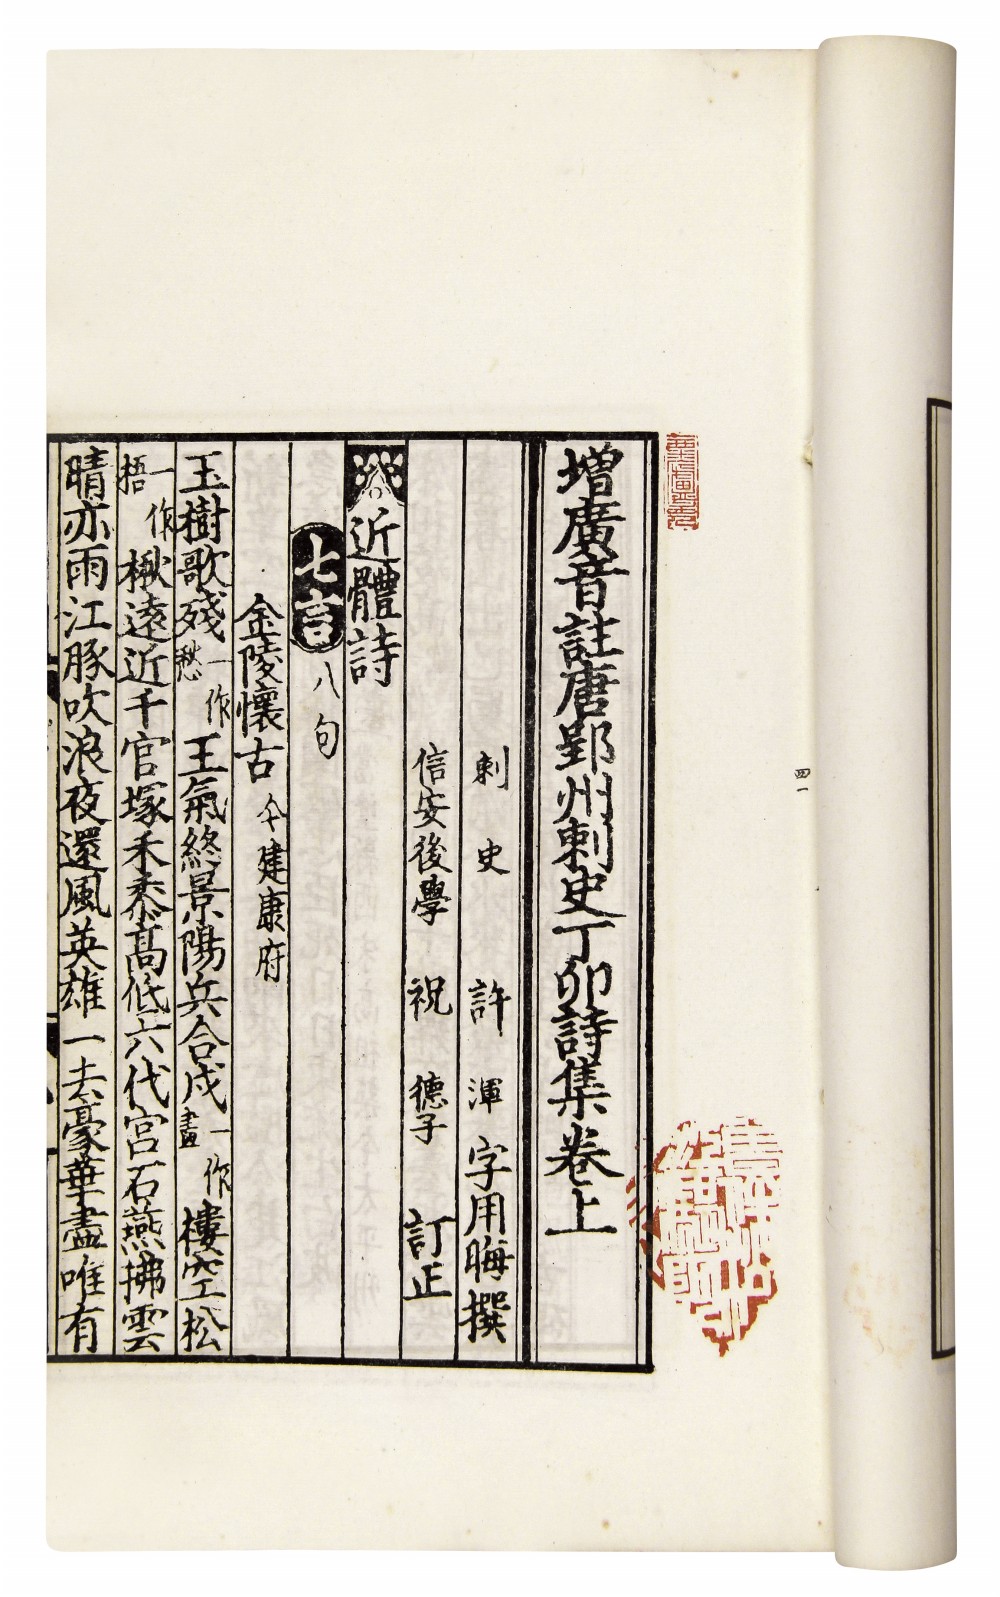 增廣音註唐郢州刺史丁卯詩集卷上
刺史 許渾 字用晦撰
信安後學 祝德子 訂正
近體詩
七言 八句
金陵懷古 今建康府
玉樹歌殘一作愁王氣終景陽兵合戍一作畫樓空松
一作梧楸遠近千官塚禾黍高低六代宮石燕拂雲
晴亦雨江豚吹浪夜還風英雄一去豪華盡唯有
四一